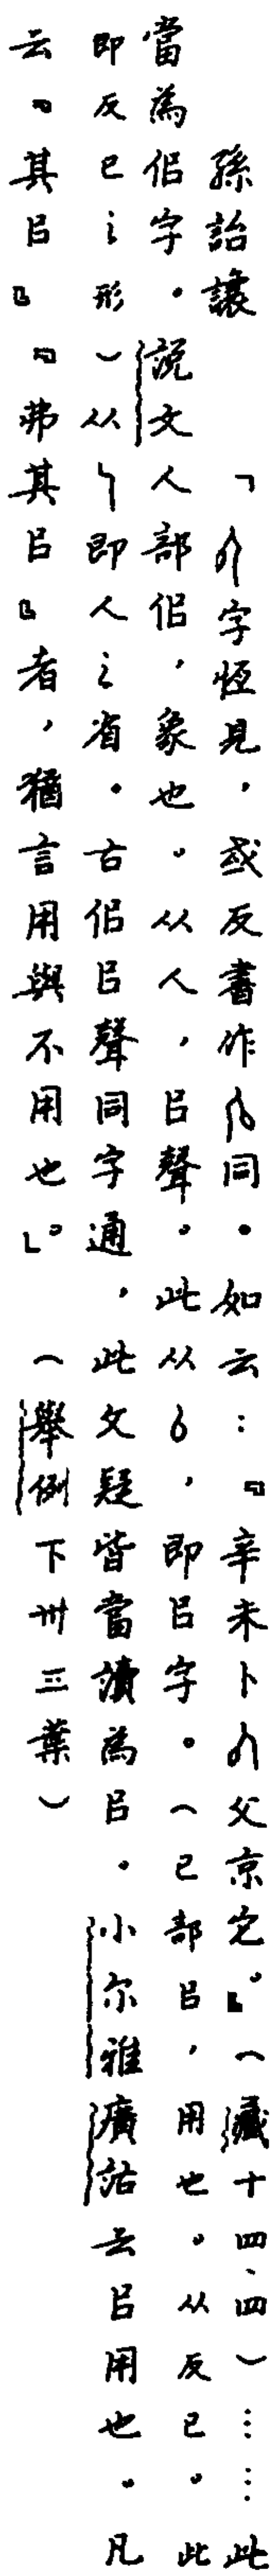 孫詒讓「字恆見，或反書作同。如云：『辛未卜父京它。』（藏十四、四）……此
當為佀字。說文人部佀，象也。从人，㠯聲。此从，即㠯字。（巳部㠯，用也。从反巳。此
即反巳之形）从即人之省。古佀㠯聲同字通，此文疑皆當讀為㠯。小尔雅廣詁云㠯用也。凡
云『其㠯』『弗其㠯』者，猶言用與不用也。」（舉例下卅三葉）